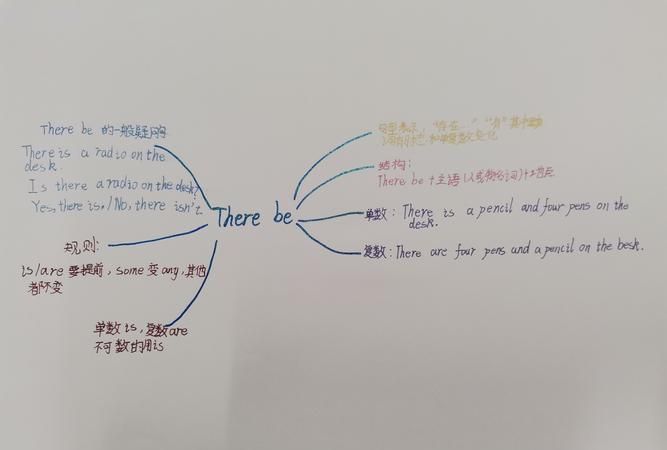 There be 的一般疑问句
There is a radio on the
desk.
Is there a radio on the desk?
Yes, there is. / No, there isn't.
规则:
is/are 要提前, some 变 any, 其他
都不变
单数 is, 复数 are
不可数的用 is
There be
句型表示, "存在..." "有" 其中
有时态和单复数变化
结构:
There be + 主语 + 地点
单数: There is a pencil and four pens on the
desk.
复数: There are four pens and a pencil on the besk.